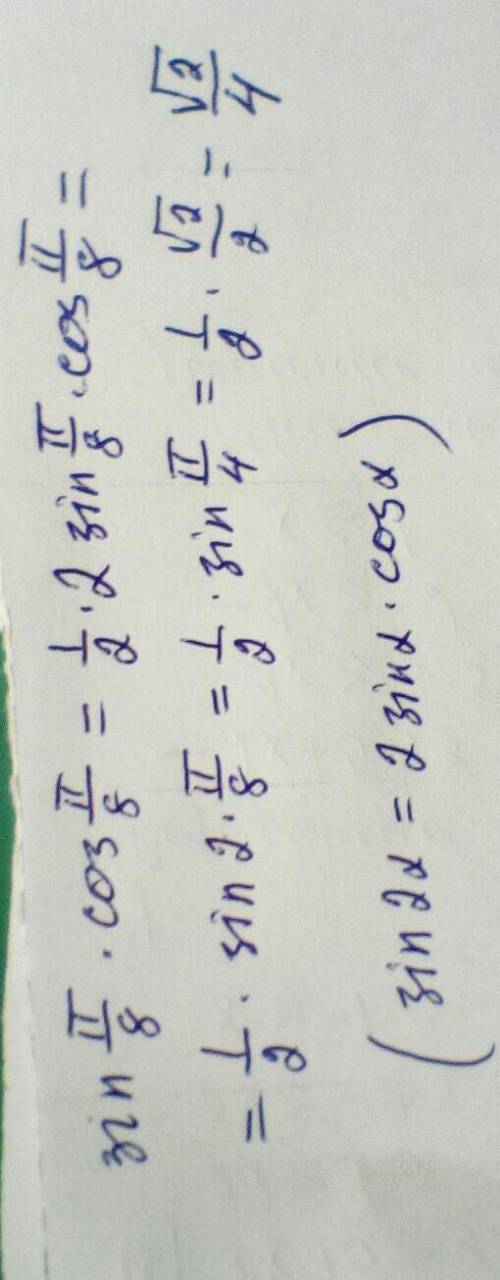 sin π/8 · cos π/8 = 1/2 · 2 sin π/8 · cos π/8 =
= 1/2 · sin 2 · π/8 = 1/2 · sin π/4 = 1/2 · √2/2 = √2/4
(sin 2α = 2 sin α · cos α)